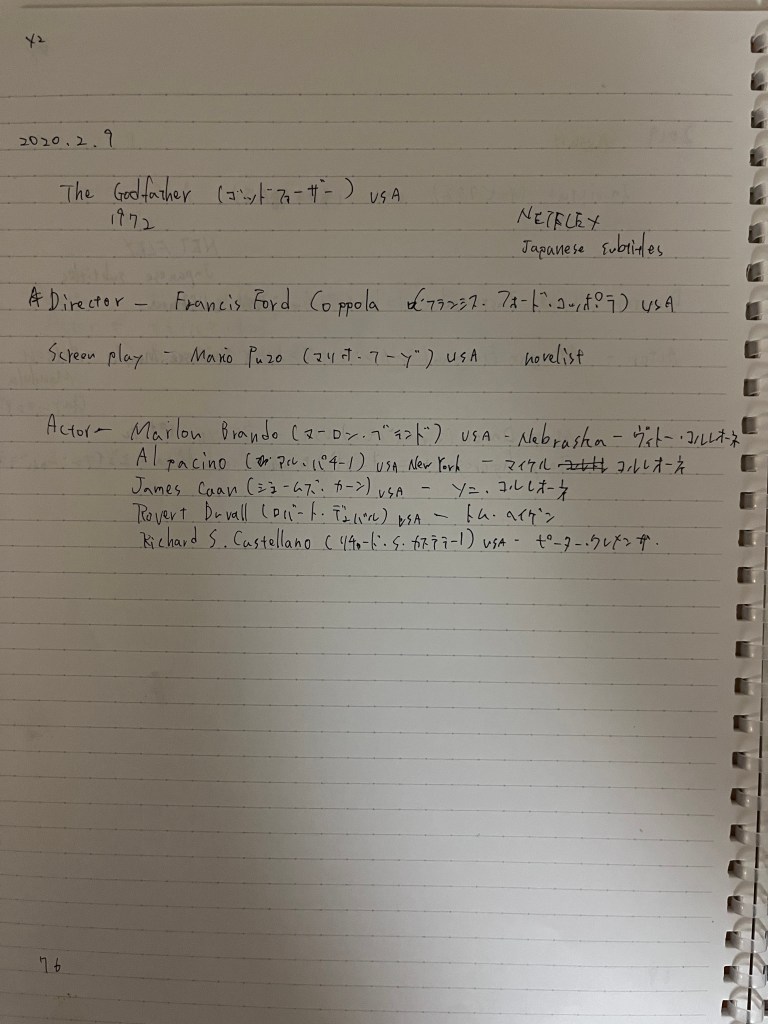 x2
2020.2.9
The Godfather (ゴットファーザー) USA
1972
NETFLEX
Japanese subtitles
Director - Francis Ford Coppola (フランシス・フォード・コッポラ) USA
Screen play - Mario Puzo (マリオ・プーゾ) USA novelist
Actor - Marlon Brando (マーロン・ブランド) USA - Nebraska - ヴィトー・コルレオーネ
Al pacino (アル・パチーノ) USA New York - マイケル コルレオーネ
James Caan (ジェームズ・カーン) USA - ソニー・コルレオーネ
Rovert Duvall (ロバート・デュバル) USA - トム・ヘイゲン
Richard S. Castellano (リチャード・S・カステラーノ) USA - ピーター・クレメンザ.
76